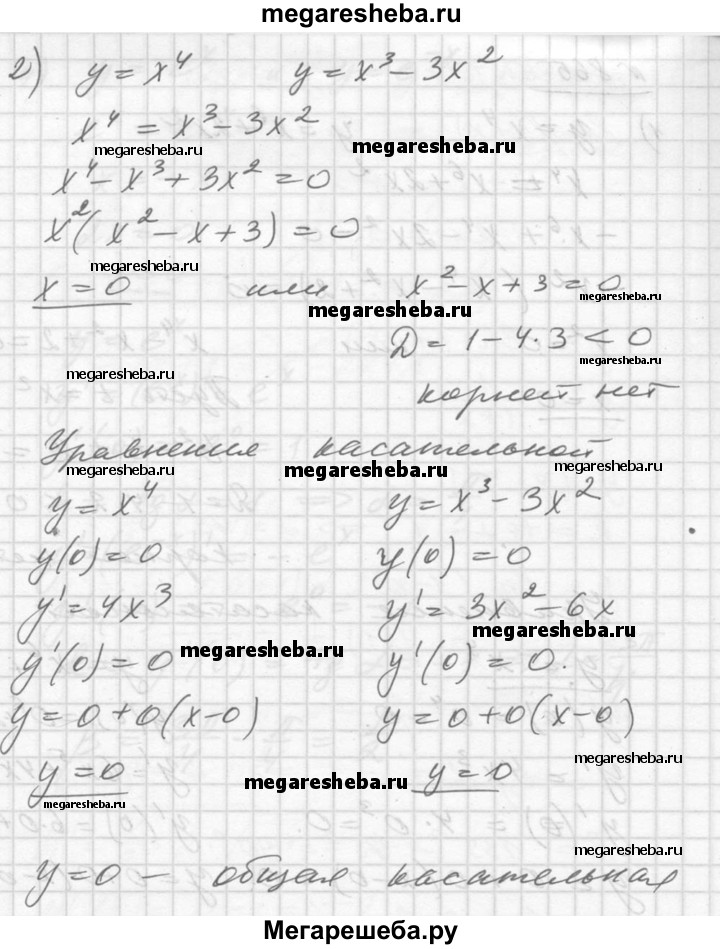 megaresheba.ru
2) y = x⁴ y = x³ - 3x²
x⁴ = x³ - 3x²
megaresheba.ru megaresheba.ru
x⁴ - x³ + 3x² = 0
x²(x² - x + 3) = 0
megaresheba.ru
x = 0 или x² - x + 3 = 0
megaresheba.ru megaresheba.ru
D = 1 - 4·3 < 0
megaresheba.ru
megaresheba.ru
корней нет
Уравнение касательной
megaresheba.ru megaresheba.ru megaresheba.ru
y = x⁴ y = x³ - 3x²
y(0) = 0 y(0) = 0
y' = 4x³ y' = 3x² - 6x
megaresheba.ru
y'(0) = 0 megaresheba.ru y'(0) = 0.
y = 0 + 0(x - 0) y = 0 + 0(x - 0)
megaresheba.ru
y = 0 megaresheba.ru y = 0
megaresheba.ru
megaresheba.ru
y = 0 — общая касательная
Мегарешеба.ру